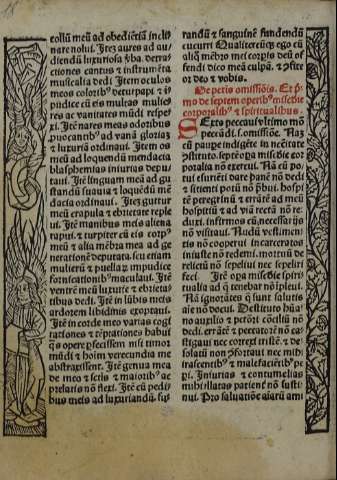 collū meū ad obediētiā incli
nare nolui. Itē aures ad au
diendū luxuriosa ꝟba. detra
ctiones cantus & instrumēta
musicalia dedi Itē oculos
meos coloribꝰ deturpaui & i
pudice cū eis multas mulies
res ac vanitates mūdi respe
xi. Itē nares meas odoribus
ꝓuocantibꝰ ad vanā gloriaȝ
& luxuriā ordinaui. Itē os
meū ad loquendū mendacia
blasphemias iniurias depu
taui. Itē linguam meā ad gu
standū suauia & loquēdū mē
dacia ordinaui. Itez guttur
meū crapula & ebrietate reple
ui. Itē manibus meis aliena
rapui. & turpiter cū eis corpꝰ
meū & alia mēbra mea ad ge
nerationē deputata. seu etiam
mulierū & puellaȝ impudice
fornicationibꝰ maculaui. Itē
ventrē meū luxurie & ebrieta
tibus dedi. Itē in lūbis meis
ardorem libidinis exoptaui.
Itē in corde meo varias cogi
tationes & reputationes habui
qs opere pfecissem nisi timor
mūdi & hoim verecundia me
abstraxissent. Itē genua mea
deo meo & scis & maioribꝰ ac
prelatis nō flexi. Itē cū pedi
bus meis ad luxuriandū. fu
randū & sanguinē fundendū
cucurri Qualitercūqꝫ ego cū
aliqꝫ mēbro mei corpis deū of
fendi dico meā culpā. & ꝯfite
or deo & vobis.
De petis omissiōis. Et p̄
mo de septem operibꝰ mīsedie
corporalibꝰ & spiritualibus
Etez peccaui vltimo mō
peccādi. s. omissiōe. Nā
cū paupe indigēte in necitate
ꝯstituto. septē opa mīsedie cor
poralia nō exercui. Nā cū po
tui esurienti dare panē nō dedi
& sitienti potū nō phui. hospi
tē peregrinū & errātē ad meū
hospitiū & ad viā rectā nō re
duxi. infirmos cū necesse fuit
nō visitaui. Nudū vestimen
tis nō cooperui incarceratos
iniuste nō redemi. mortuū de
relictū nō sepeliui nec sepeliri
feci. Itē opa mīsedie spiri
tualia ad q tenebar nō ipleui.
Nā ignorātes q sunt salutis
aie nō docui. Destituto hūa
no auxilio & petēti cōsiliū nō
dedi. errātē & peccatorē nō ca
stigaui nec correxi tristē. & de
solatū nō ꝯfortaui nec mihi
irascentibꝰ & malefaciētibꝰ pe
pci. Iniurias & contumelias
mihi illatas patienter nō susti
nui. Pro saluatiōe aiarū ami